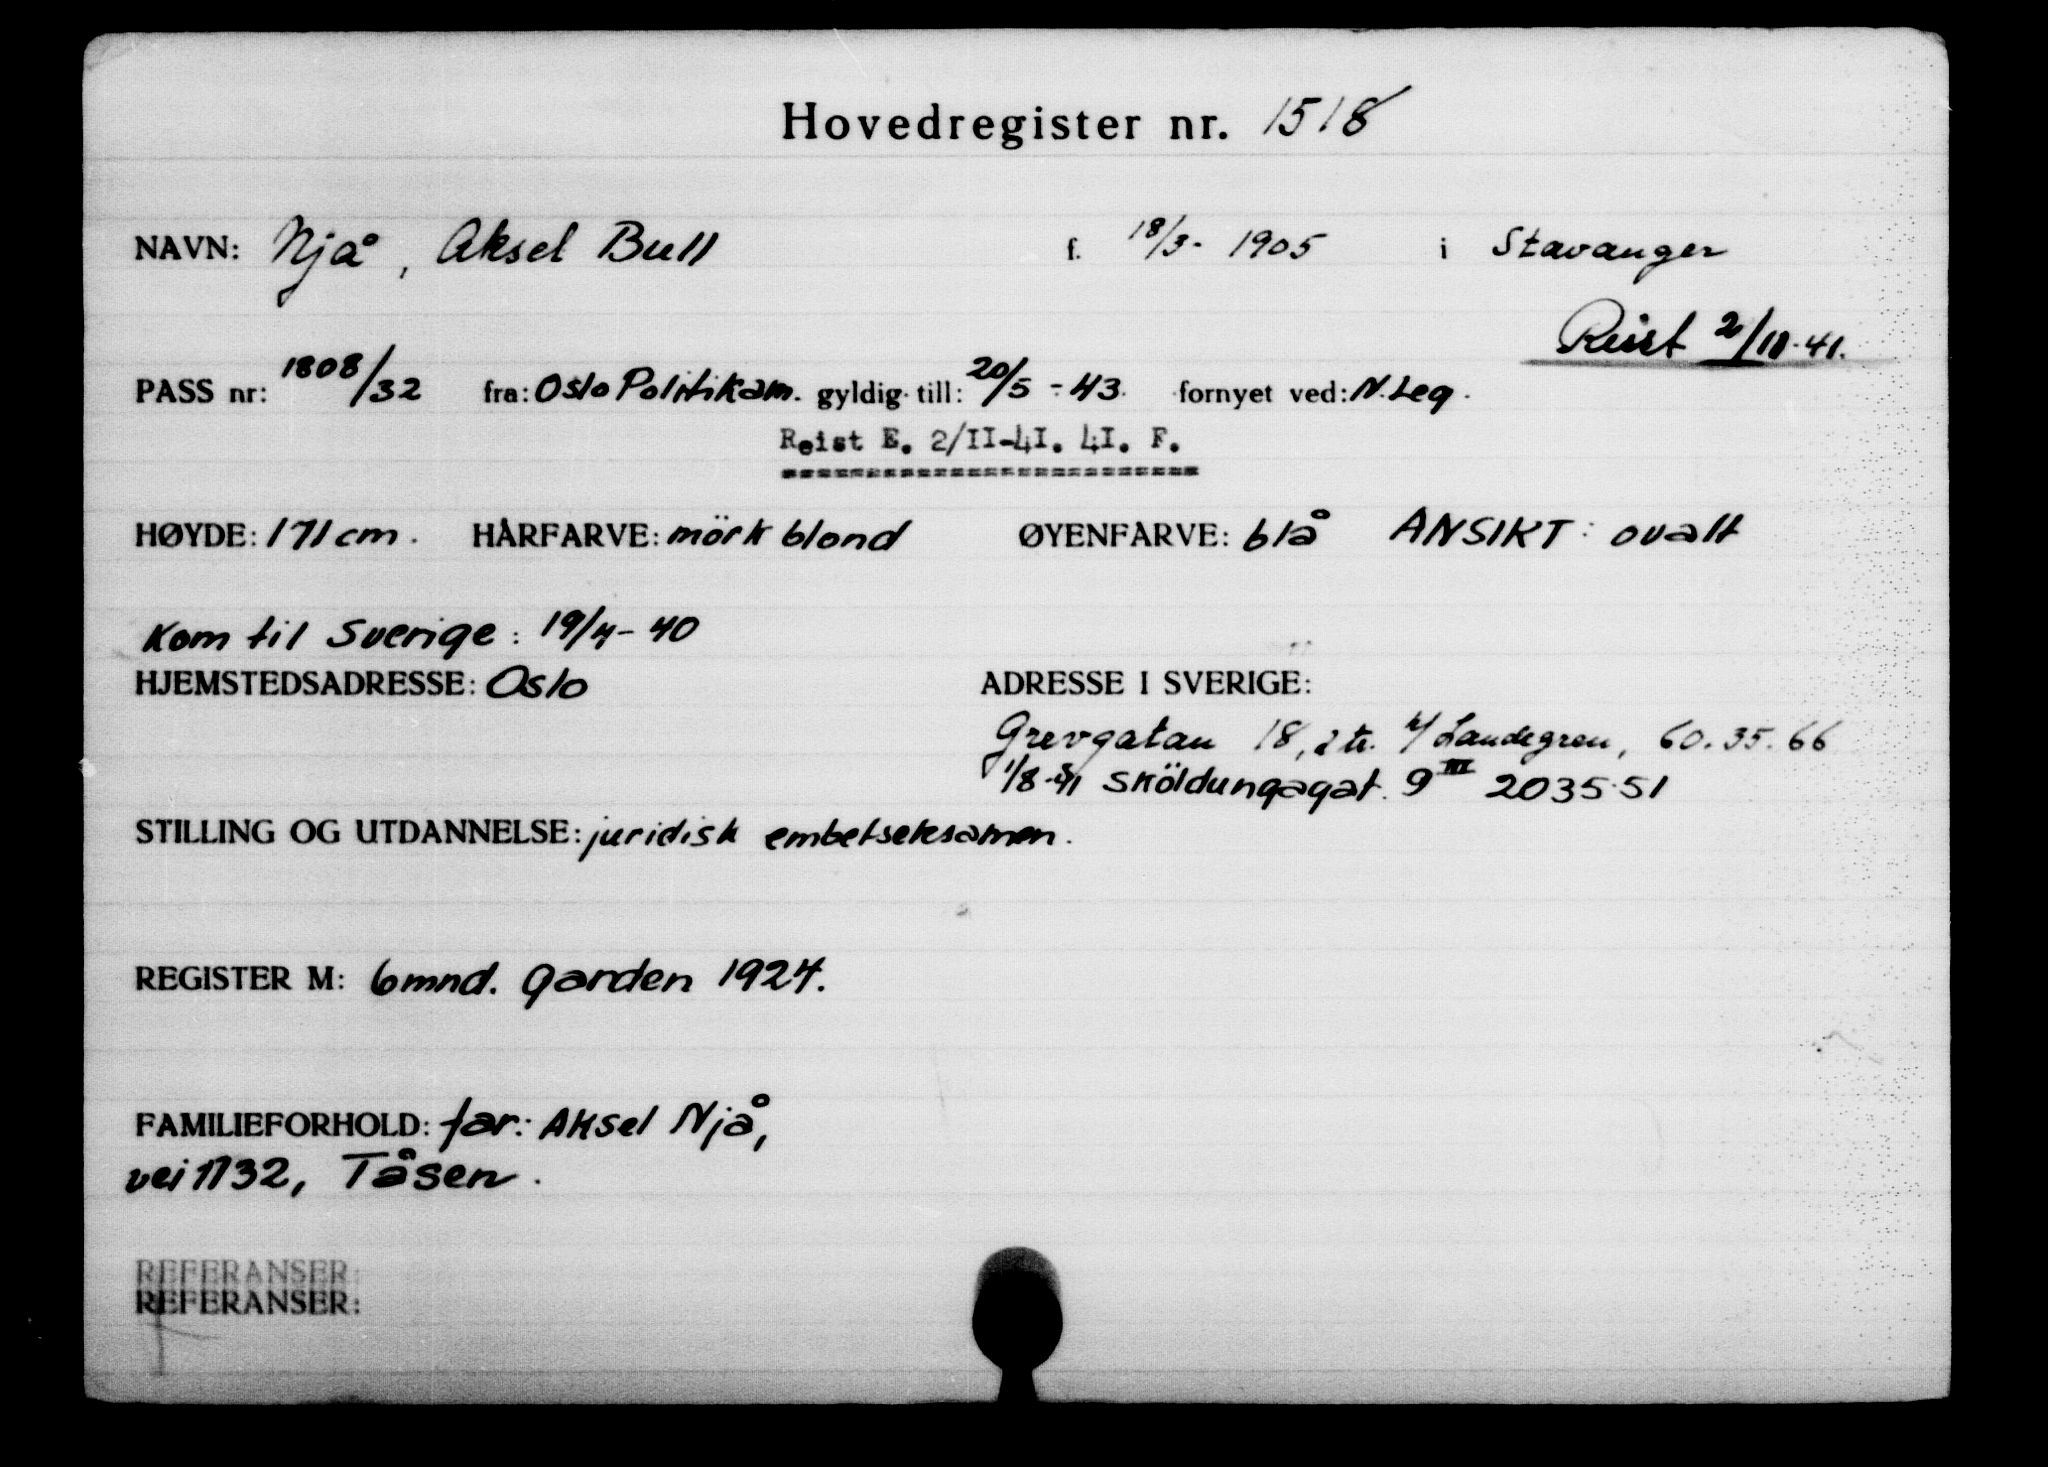 Hovedregister nr. 1518
NAVN: Njå, Aksel Bull f. 18/3- 1905 i Stavanger
Reist 2/11-41.
PASS nr: 1808/32 fra: Oslo Politikam. gyldig till: 20/5 - 43. fornyet ved: N.Leg.
Reist E. 2/II-41. 41. F.
HØYDE: 171 cm. HÅRFARVE: mörk blond ØYENFARVE: blå ANSIKT: ovalt
Kom til Sverige: 19/4-40
HJEMSTEDSADRESSE: Oslo ADRESSE I SVERIGE:
Grevgatan 18, 2 tr. h/ Landegren, 60.35.66
1/8-41 Sköldungagat. 9 III 203551
STILLING OG UTDANNELSE: juridisk embetseksamen.
REGISTER M: 6 mnd. Garden 1924.
FAMILIEFORHOLD: far: Aksel Njå,
vei 1732, Tåsen.
REFERANSER:
REFERANSER: